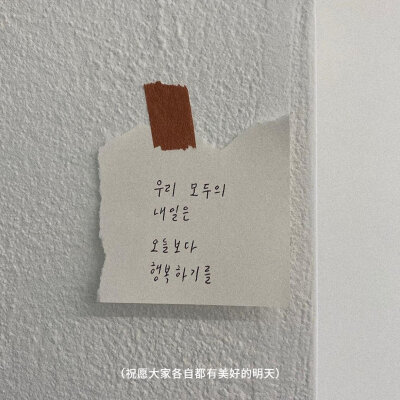 우리 모두의
내일은
오늘보다
행복하기를
（祝愿大家各自都有美好的明天）